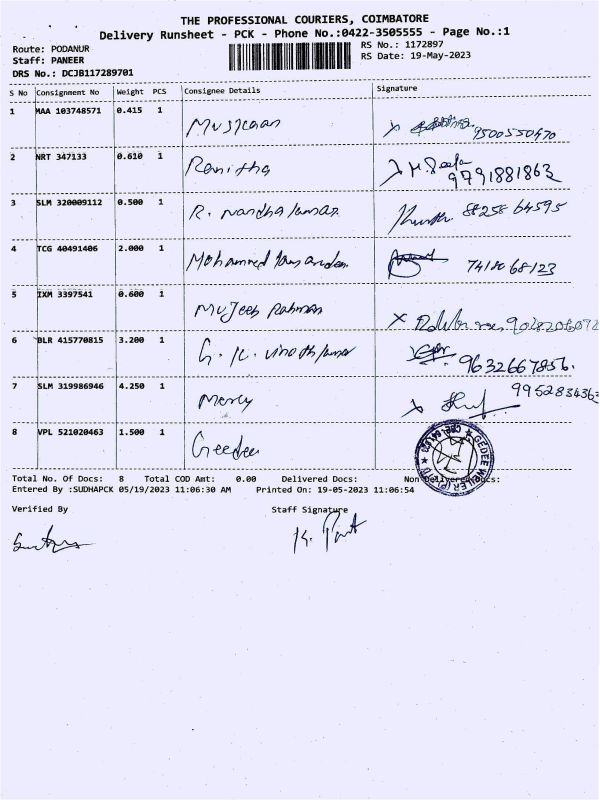 THE PROFESSIONAL COURIERS, COIMBATORE
Delivery Runsheet - PCK - Phone No.:0422-3505555 - Page No.:1
Route: PODANUR
Staff: PANEER
DRS No.: DCJB117289701
RS No.: 1172897
RS Date: 19-May-2023
S No Consignment No Weight PCS Consignee Details Signature
1 MAA 103748571 0.415 1 Muskaan 9500550470
2 NRT 347133 0.610 1 Ranitha 9791881863
3 SLM 320009112 0.500 1 R. nandha kumar 88258 64595
4 TCG 40491406 2.000 1 Mohammed 74180 68123
5 IXM 3397541 0.600 1 Mujeeb Rahman
6 BLR 415770815 3.200 1 G. K. vinoth kumar 9632667856.
7 SLM 319986946 4.250 1 Mercy 995283436
8 VPL 521020463 1.500 1 Geedee
GEDEE WEILER (P) LTD
Total No. Of Docs: 8 Total COD Amt: 0.00 Delivered Docs: Non Delivered Docs:
Entered By :SUDHAPCK 05/19/2023 11:06:30 AM Printed On: 19-05-2023 11:06:54
Verified By Staff Signature